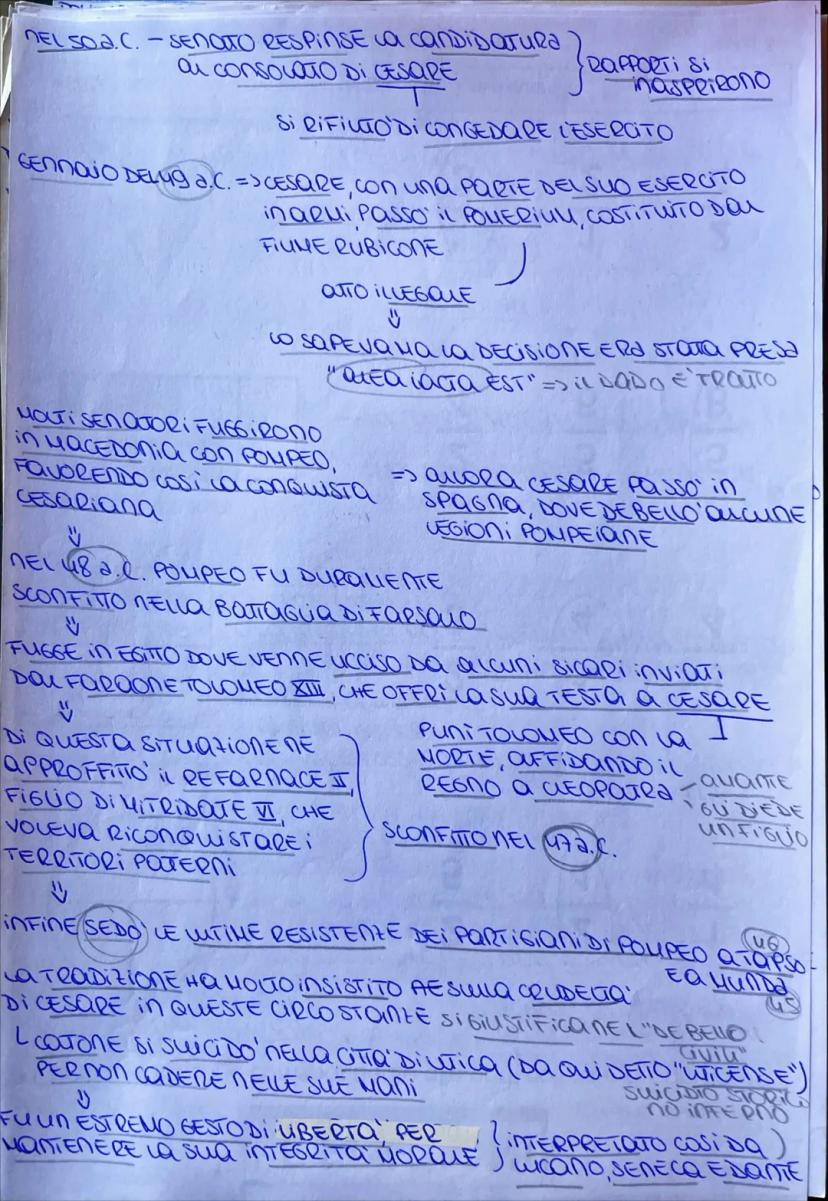 NEL 50 a.C. – SENATO RESPINSE LA CANDIDATURA
AL CONSOLATO DI CESARE
RAPPORTI SI
INASPRIRONO
SI RIFIUTO' DI CONGEDARE L'ESERCITO
GENNAIO DEL 49 a.C. => CESARE, CON UNA PARTE DEL SUO ESERCITO
IN ARMI, PASSO' IL POMERIUM, COSTITUITO DAL
FIUME RUBICONE
ATTO ILLEGALE
⇓
LO SAPEVA MA LA DECISIONE ERA STATA PRESA
"ALEA IACTA EST" => IL DADO E' TRATTO
MOLTI SENATORI FUGGIRONO
IN MACEDONIA CON POMPEO,
FAVORENDO COSI LA CONQUISTA
CESARIANA
=> ALLORA CESARE PASSO' IN
SPAGNA, DOVE DEBELLO' ALCUNE
LEGIONI POMPEIANE
⇓
NEL 48 a.C. POMPEO FU DURAMENTE
SCONFITTO NELLA BATTAGLIA DI FARSALO
⇓
FUGGE IN EGITTO DOVE VENNE UCCISO DA ALCUNI SICARI INVIATI
DAL FARAONE TOLOMEO XIII, CHE OFFRI LA SUA TESTA A CESARE
⇓
PUNI TOLOMEO CON LA
MORTE, AFFIDANDO IL
REGNO A CLEOPATRA
– AMANTE
GLI DIEDE
UN FIGLIO
DI QUESTA SITUAZIONE NE
APPROFFITTO' IL RE FARNACE II,
FIGLIO DI MITRIDATE VI, CHE
VOLEVA RICONQUISTARE I
TERRITORI PATERNI
SCONFITTO NEL 47 a.C.
⇓
INFINE SEDO' LE ULTIME RESISTENZE DEI PARTIGIANI DI POMPEO A TAPSO
46
E A MUNDA
45
LA TRADIZIONE HA MOLTO INSISTITO SULLA CRUDELTA'
DI CESARE IN QUESTE CIRCOSTANZE SI GIUSTIFICA NEL "DE BELLO
CIVILI"
CATONE SI SUICIDO' NELLA CITTA' DI UTICA (DA QUI DETTO "UTICENSE")
PER NON CADERE NELLE SUE MANI
SUICIDIO
NO INFERNO
⇓
FU UN ESTREMO GESTO DI LIBERTA' PER
MANTENERE LA SUA INTEGRITA' MORALE
INTERPRETATO COSI DA
LUCANO, SENECA E DANTE